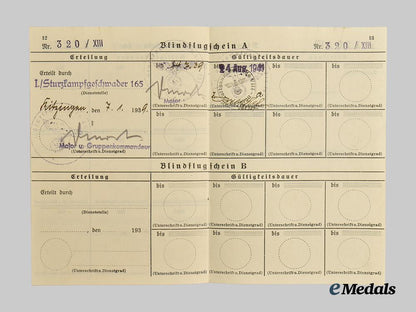 12
13
Nr. 320 / XIII
Blindflugschein A
Nr. 320 / XIII
Erteilung
Gültigkeitsdauer
Erteilt durch
I./Sturzkampfgeschwader 165
(Dienststelle)
Kitzingen, 7. 1. 1939
Major u. Gruppenkommandeur
(Unterschrift u. Dienstgrad)
bis
bis 24. Aug. 1941
bis
bis
Major
(Unterschrift u. Dienstgrad)
(Unterschrift u. Dienstgrad)
(Unterschrift u. Dienstgrad)
bis
bis
bis
bis
(Unterschrift u. Dienstgrad)
(Unterschrift u. Dienstgrad)
(Unterschrift u. Dienstgrad)
(Unterschrift u. Dienstgrad)
Blindflugschein B
Erteilung
Gültigkeitsdauer
Erteilt durch
(Dienststelle)
, den 193
(Unterschrift u. Dienstgrad)
bis
bis
bis
bis
(Unterschrift u. Dienstgrad)
(Unterschrift u. Dienstgrad)
(Unterschrift u. Dienstgrad)
(Unterschrift u. Dienstgrad)
bis
bis
bis
bis
(Unterschrift u. Dienstgrad)
(Unterschrift u. Dienstgrad)
(Unterschrift u. Dienstgrad)
(Unterschrift u. Dienstgrad)
eMedals